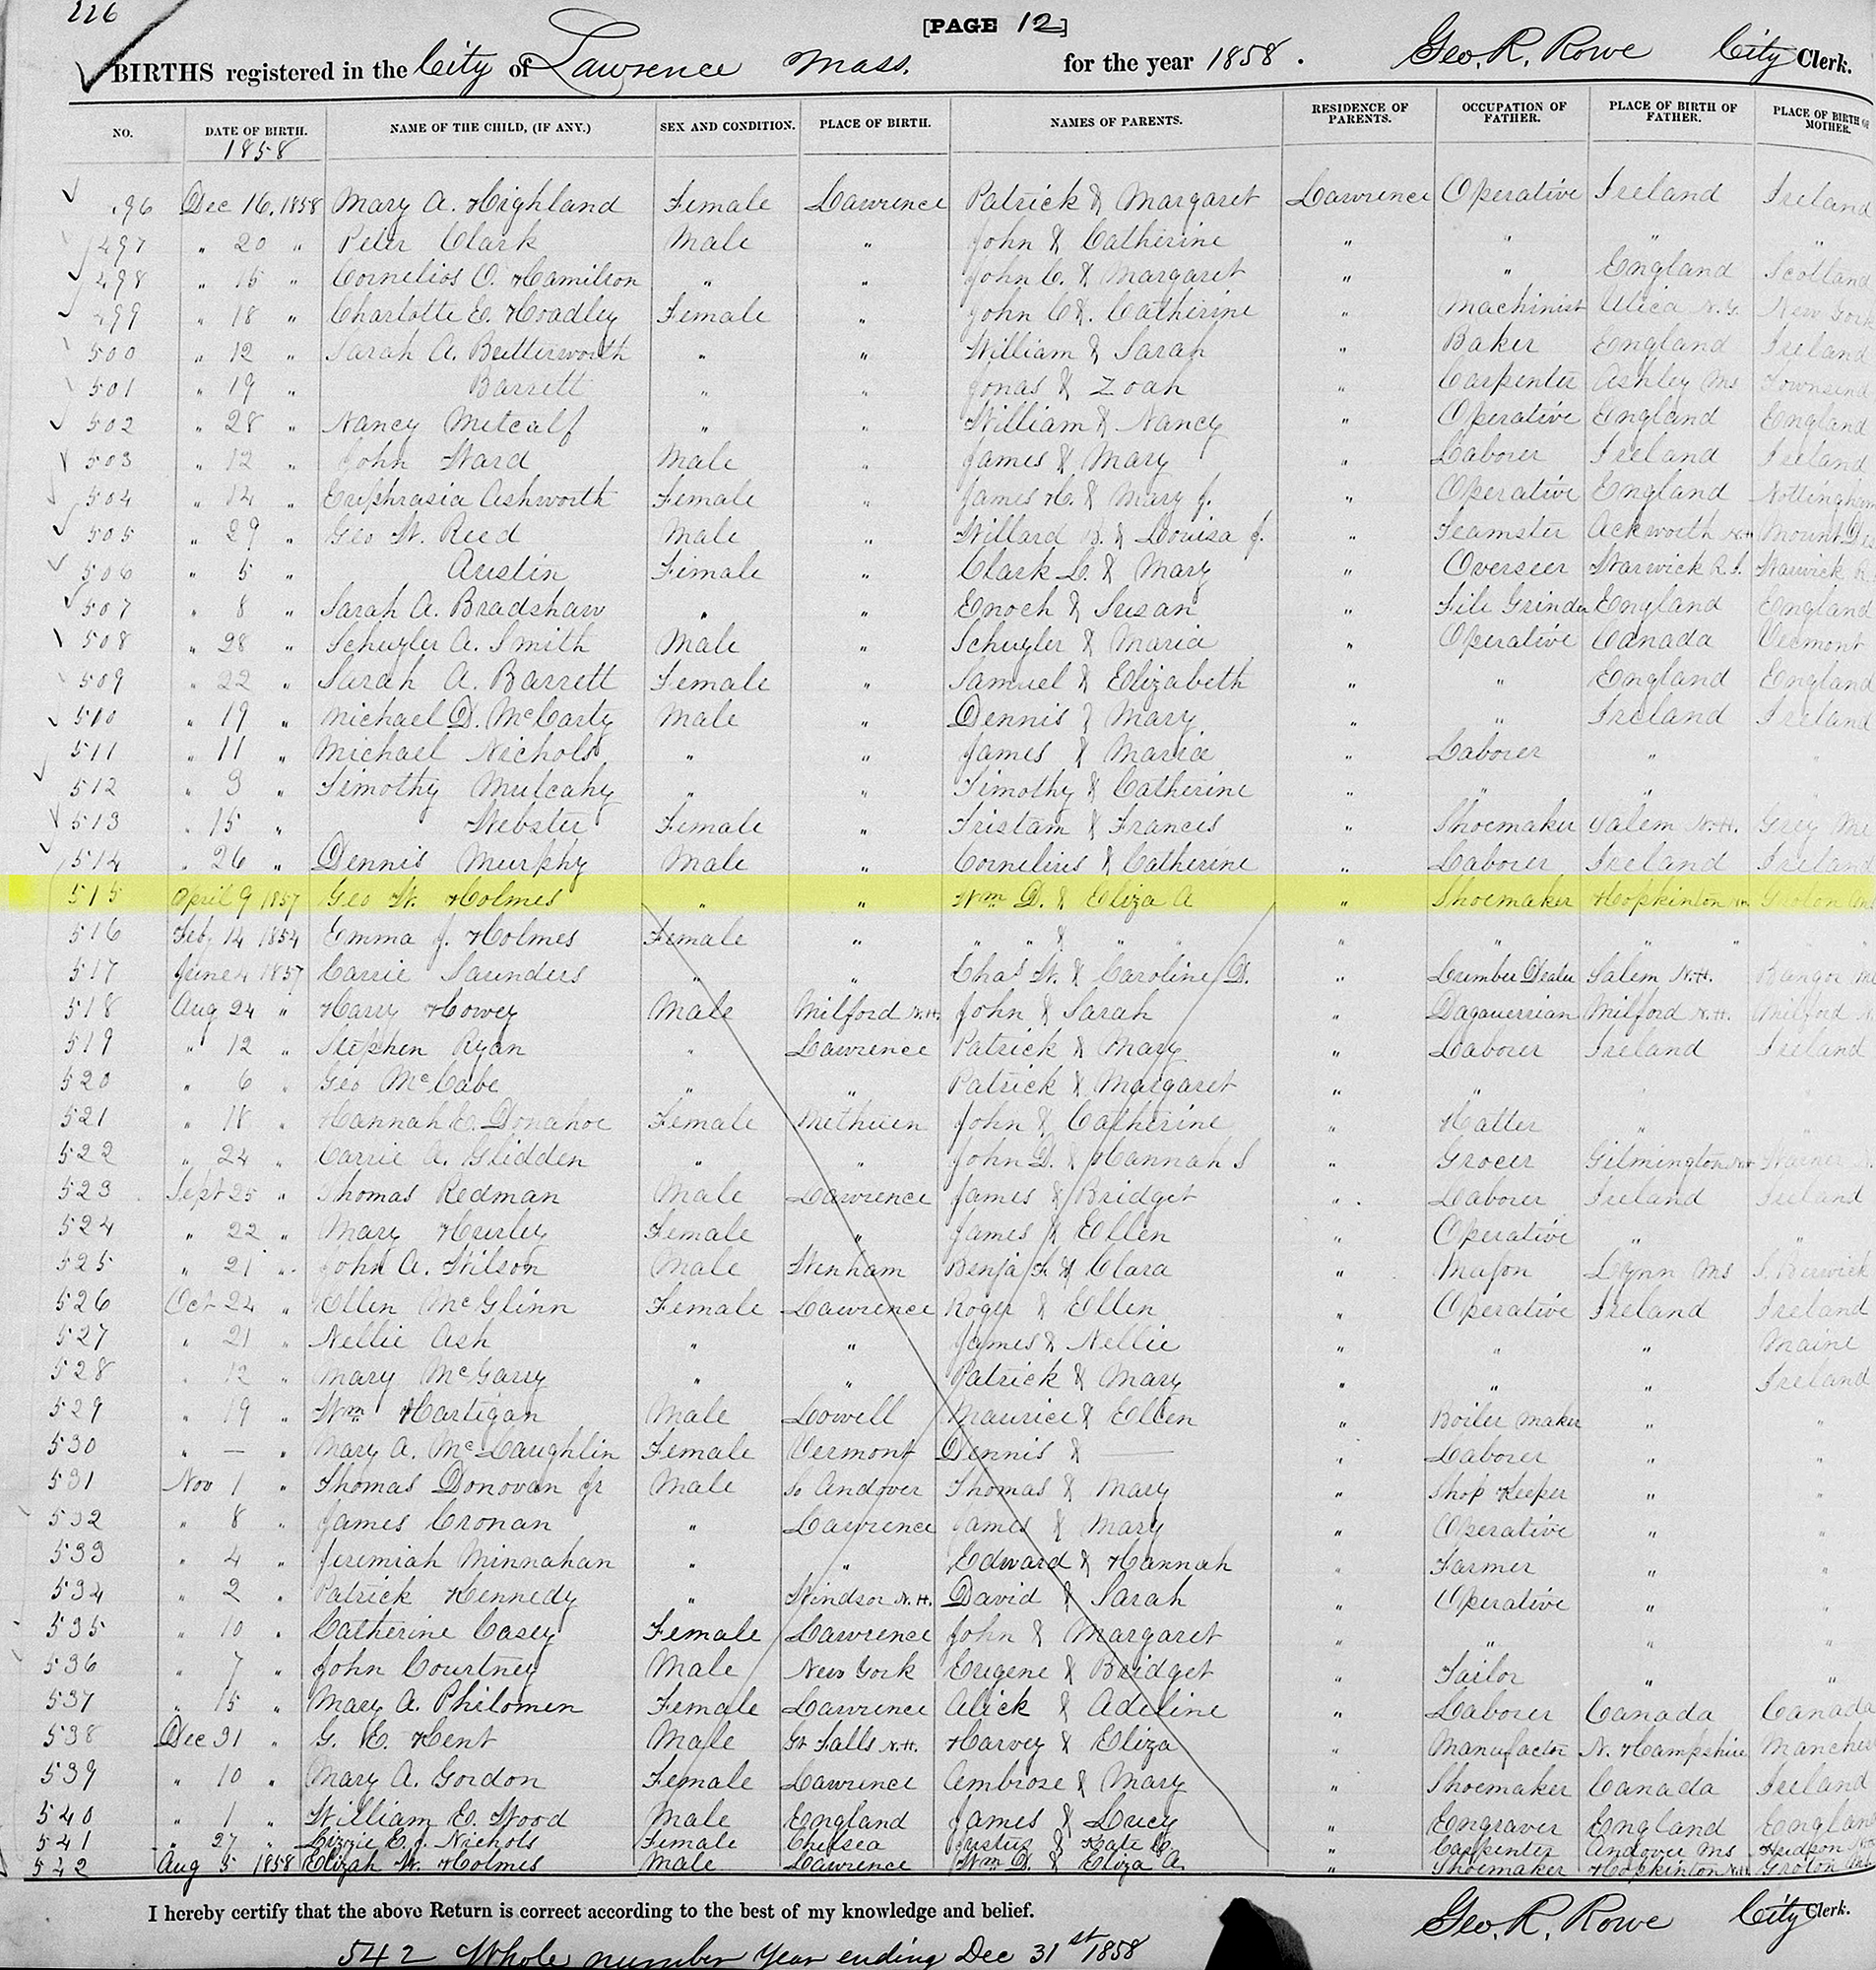 226
[PAGE 12]
BIRTHS registered in the City of Lawrence Mass. for the year 1858. Geo. R. Rowe City Clerk.
NO. DATE OF BIRTH. NAME OF THE CHILD, (IF ANY.) SEX AND CONDITION. PLACE OF BIRTH. NAMES OF PARENTS. RESIDENCE OF PARENTS. OCCUPATION OF FATHER. PLACE OF BIRTH OF FATHER. PLACE OF BIRTH OF MOTHER.
1858
496 Dec 16, 1858 Mary A. Highland Female Lawrence Patrick & Margaret Lawrence Operative Ireland Ireland
497 " 20 " Peter Clark Male " John & Catherine " " " "
498 " 15 " Cornelios O. Hamilson " " John C. & Margaret " " England Scotland
499 " 18 " Charlotte E. Hoadley Female " John C &. Catherine " Machinist Utica N.Y. New York
500 " 12 " Sarah A. Butterworth " " William & Sarah " Baker England Ireland
501 " 19 " Barrett " " Jonas & Zoah " Carpenter Ashley Ms Townsend
502 " 28 " Nancy Metcalf " " William & Nancy " Operative England England
503 " 12 " John Ward Male " James & Mary " Laborer Ireland Ireland
504 " 14 " Euphrasia Ashworth Female " James H. & Mary J. " Operative England Nottingham
505 " 29 " Geo W. Reed Male " Willard B. & Louisa J. " Teamster Ackworth N.H. Mount
506 " 5 " Austin Female " Clark L. & Mary " Overseer Warwick R.I. Warwick R.
507 " 8 " Sarah A. Bradshaw " " Enoch & Susan " File Grinder England England
508 " 28 " Schuyler A. Smith Male " Schuyler & Maria " Operative Canada Vermont
509 " 22 " Sarah A. Barrett Female " Samuel & Elizabeth " " England England
510 " 19 " Michael D. McCarty Male " Dennis & Mary " " Ireland Ireland
511 " 11 " Michael Nichols " " James & Maria " Laborer " "
512 " 3 " Timothy Mulcahy " " Timothy & Catherine " " " "
513 " 15 " Webster Female " Tristam & Frances " Shoemaker Salem N.H. Grey Me
514 " 26 " Dennis Murphy Male " Cornelius & Catherine " Laborer Ireland Ireland
515 April 9 1857 Geo W. Holmes " " Wm D. & Eliza A " Shoemaker Hopkinton Groton
516 Feb. 14 1854 Emma J. Holmes Female " " " & " " " " " "
517 June 4 1857 Carrie Saunders " " Chas W. & Caroline D. " Lumber Dealer Salem N.H. Bangor Me
518 Aug 24 " Harry Howey Male Milford N.H. John & Sarah " Dagauerrian Milford N.H. Milford N.
519 " 12 " Stephen Ryan " Lawrence Patrick & Mary " Laborer Ireland Ireland
520 " 6 " Geo McCabe " " Patrick & Margaret " " " "
521 " 18 " Hannah E. Donahoe Female Methuen John & Catherine " Hatter " "
522 " 24 " Carrie A. Glidden " " John D. & Hannah S " Grocer Gilmington N.H. Warner
523 Sept 25 " Thomas Redman Male Lawrence James & Bridget " Laborer Ireland Ireland
524 " 22 " Mary Hurley Female " James & Ellen " Operative " "
525 " 21 " John A. Wilson Male Wenham Benja F. & Clara " Mason Lynn Ms S. Berwick
526 Oct 24 " Ellen McGlinn Female Lawrence Roger & Ellen " Operative Ireland Ireland
527 " 21 " Nellie Ash " " James & Nellie " " " Maine
528 " 12 " Mary McGarry " " Patrick & Mary " " " Ireland
529 " 19 " Wm Hartigan Male Lowell Maurice & Ellen " Boiler maker " "
530 " — " Mary A. McLaughlin Female Vermont Dennis & — " Laborer " "
531 Nov 1 " Thomas Donovan Jr Male So Andover Thomas & Mary " Shop Keeper " "
532 " 8 " James Cronan " Lawrence James & Mary " Operative " "
533 " 4 " Jeremiah Minnahan " " Edward & Hannah " Farmer " "
534 " 2 " Patrick Kennedy " Windsor N.H. David & Sarah " Operative " "
535 " 10 " Catherine Casey Female Lawrence John & Margaret " " " "
536 " 7 " John Courtney Male New York Eugene & Bridget " Tailor " "
537 " 15 " Mary A. Philomen Female Lawrence Alick & Adeline " Laborer Canada Canada
538 Dec 31 " G. E. Kent Male Gt Falls N.H. Harvey & Eliza " Manufactor N. Hampshire Manches
539 " 10 " Mary A. Gordon Female Lawrence Ambrose & Mary " Shoemaker Canada Ireland
540 " 1 " William E. Wood Male England James & Lucy " Engraver England England
541 " 27 " Lizzie E. J. Nichols Female Chelsea Justus & Kate C. " Carpenter Andover Ms Hudson
542 Aug 5 1858 Elizah W. Holmes Male Lawrence Wm D. & Eliza A. " Shoemaker Hopkinton N.H. Groton
I hereby certify that the above Return is correct according to the best of my knowledge and belief. Geo. R. Rowe City Clerk.
542 Whole number Year ending Dec 31st 1858